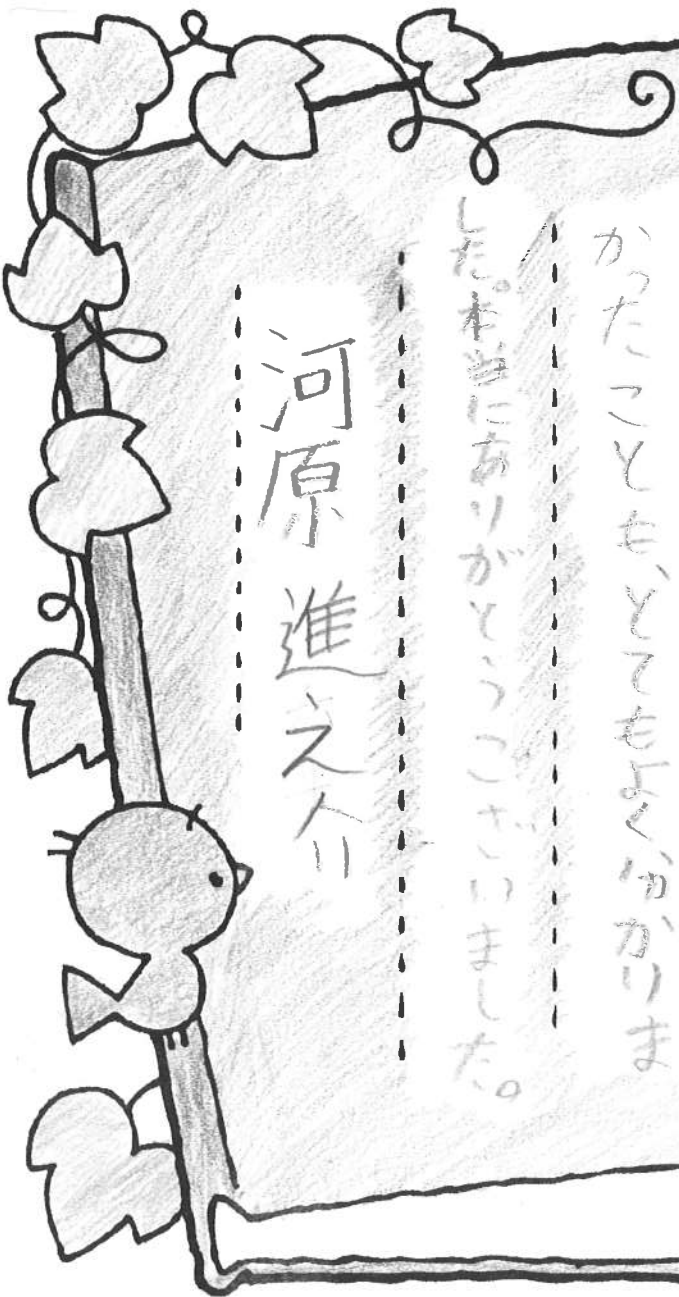 かったことも、とてもよく分かりま
した。本当にありがとうございました。
河原 進之介